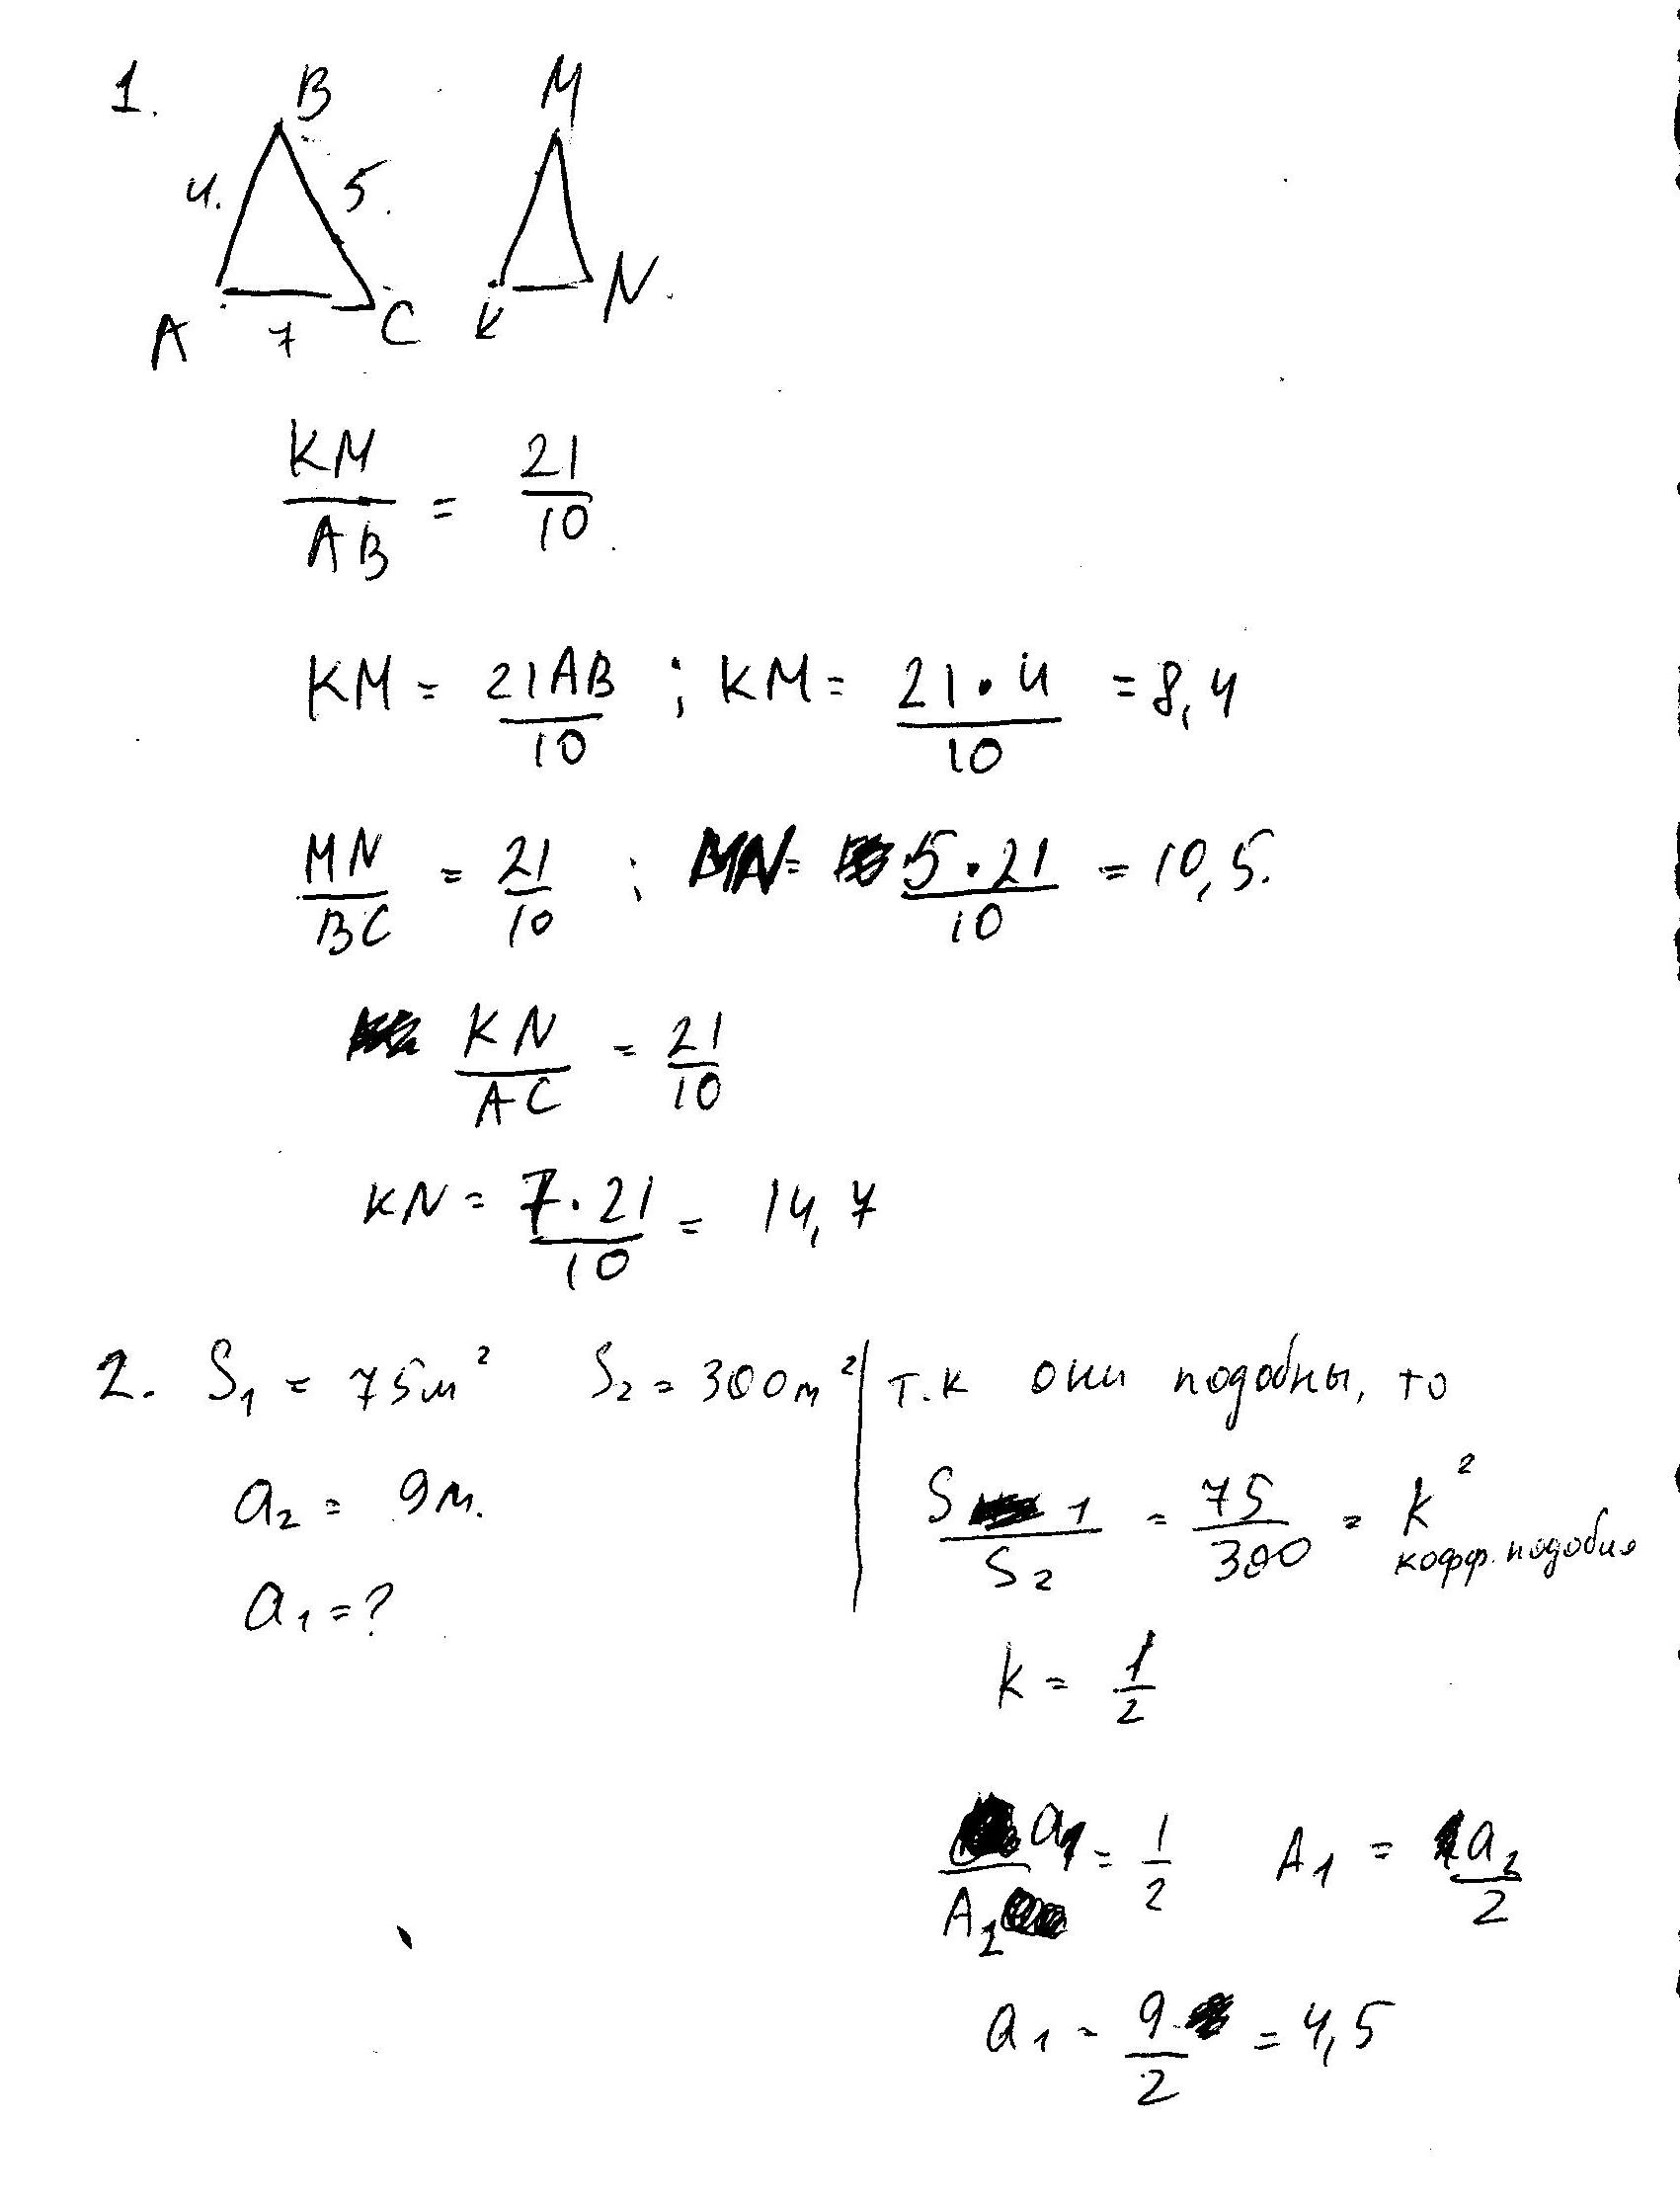 1.
B M
4. 5.
A 7 C K N.
KM/AB = 21/10
KM = 21AB/10 ; KM = 21·4/10 = 8,4
MN/BC = 21/10 ; MN = 5·21/10 = 10,5.
KN/AC = 21/10
KN = 7·21/10 = 14,7
2. S₁ = 75м² S₂ = 300м²
a₂ = 9м.
a₁ = ?
т.к они подобны, то
S₁/S₂ = 75/300 = k²
кофф. подобия
k = 1/2
a₁/A₂ = 1/2 A₁ = 1a₂/2
a₁ = 9/2 = 4,5